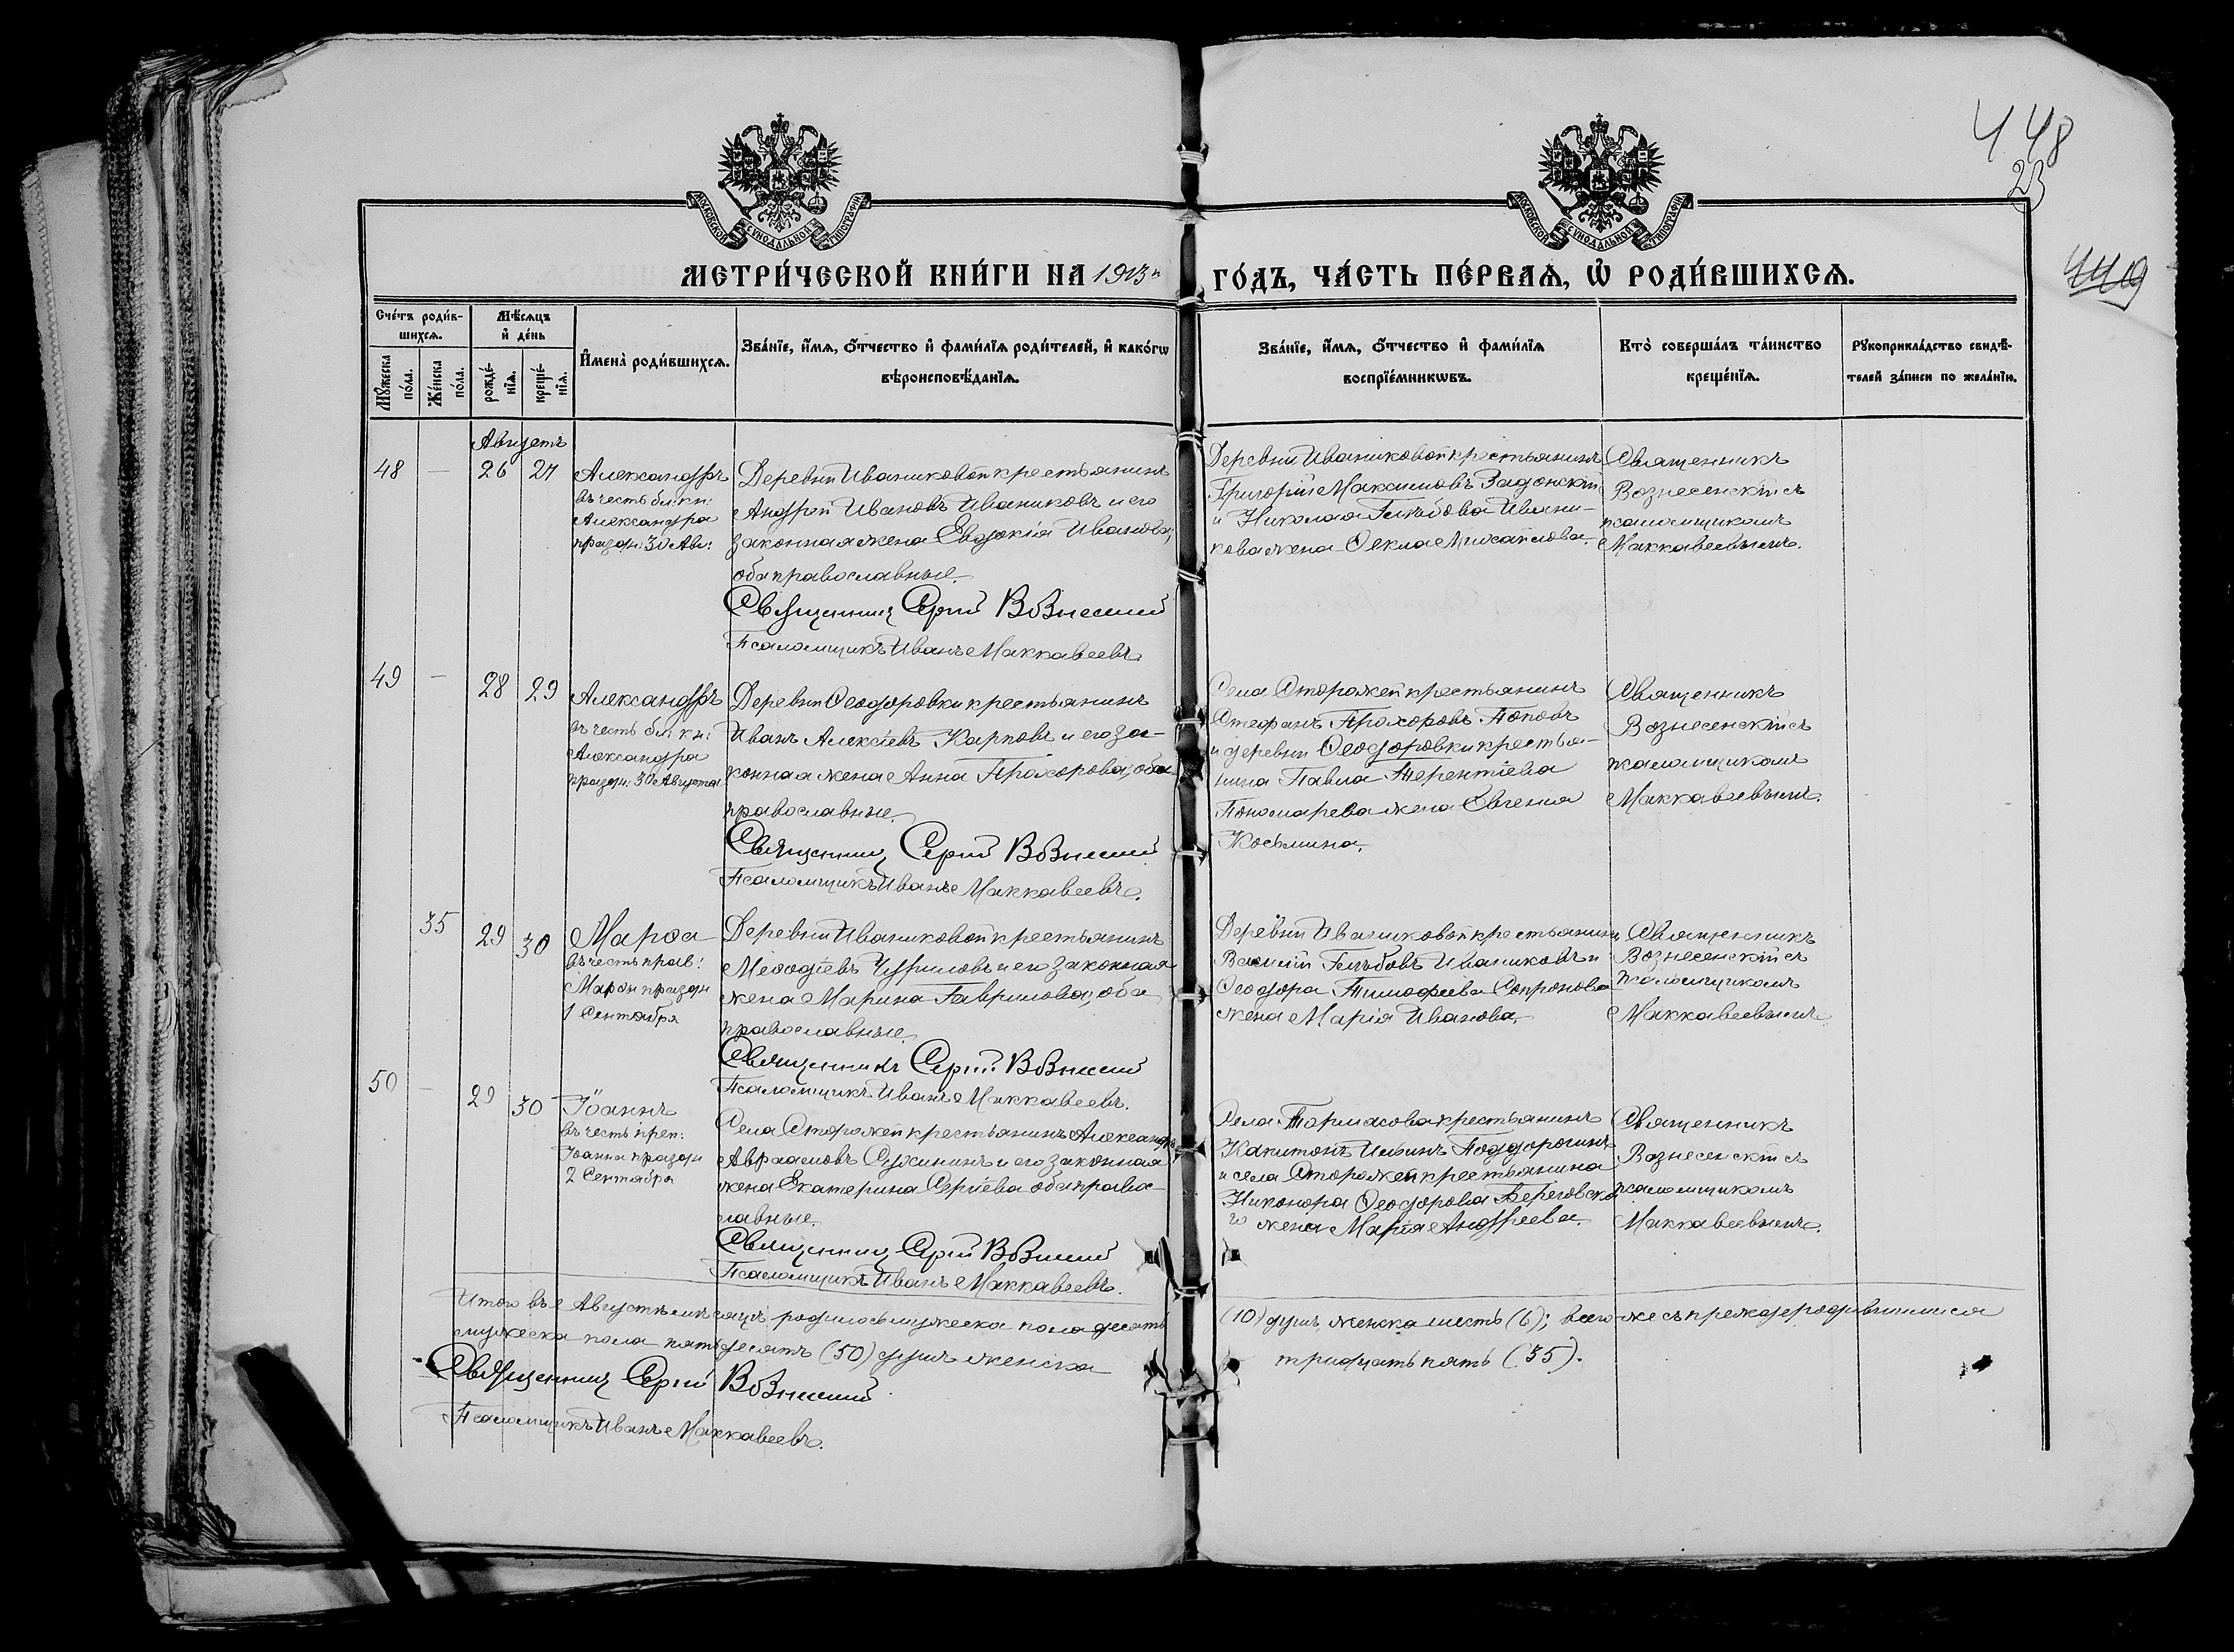 448
23
449
МОСКОВСКОЙ СѴНОДАЛЬНОЙ ТИПОГРАФІИ
МОСКОВСКОЙ СѴНОДАЛЬНОЙ ТИПОГРАФІИ
МЕТРИ́ЧЕСКОЙ КНИ́ГИ НА 1913й ГО́ДЪ, ЧА́СТЬ ПЕ́РВАѦ, Ѡ҆ РОДИ́ВШИХСѦ.
Сче́тъ роди́в-
шихсѧ.
Мꙋ́жеска
по́ла.
Же́нска
по́ла.
Мѣ́сѧцъ
и҆ де́нь
рожде́-
нїѧ.
креще́-
нїѧ.
И҆мена̀ роди́вшихсѧ.
Зва́нїе, и҆́мѧ, ѻ҆́тчество и҆ фами́лїѧ роди́телей, и҆ како́гѡ
вѣроисповѣ́данїѧ.
Зва́нїе, и҆́мѧ, ѻ҆́тчество и҆ фами́лїѧ
воспрїе́мникѡвъ.
Кто̀ соверша́лъ та́инство
креще́нїѧ.
Рꙋкоприкла́дство свидѣ́-
телей за́писи по жела́нїю.
Августъ
48 — 26 27
Александръ
въ честь бл: кн:
Александра
празд: 30 Авг:
Деревни Иваниковой крестьянинъ
Андрей Ивановъ Иваниковъ и его
законная жена Евдокія Иванова,
оба православные.
Священникъ Сергій Вознесенскій
Псаломщикъ Иванъ Маккавеевъ.
Деревни Иваниковой крестьянинъ
Григорій Максимовъ Задонскій
и Николая Глѣбова Ивани-
кова жена Ѳекла Михайлова.
Священникъ
Вознесенскій съ
псаломщикомъ
Маккавеевымъ.
49 — 28 29
Александръ
въ честь бл: кн:
Александра
праздн. 30 Августа
Деревни Ѳеодоровки крестьянинъ
Иванъ Алексіевъ Карповъ и его за-
конная жена Анна Прохорова, оба
православные.
Священникъ Сергій Вознесенскій
Псаломщикъ Иванъ Маккавеевъ.
Села Сторожей крестьянинъ
Стефанъ Прохоровъ Поповъ
и деревни Ѳеодоровки крестья-
нина Павла Терентіева
Пономарева жена Евгенія
Косьмина.
Священникъ
Вознесенскій съ
псаломщикомъ
Маккавеевымъ.
35 29 30
Марѳа
въ честь прав:
Марѳы праздн
1 Сентября
Деревни Иваниковой крестьянинъ
Меѳодіевъ Чуриловъ и его законная
жена Марина Гаврилова, оба
православные.
Священникъ Сергій Вознесенскій
Псаломщикъ Иванъ Маккавеевъ.
Деревни Иваниковой крестьянинъ
Василій Глѣбовъ Иваниковъ и
Ѳеодора Тимофеева Сопронова
жена Марія Иванова.
Священникъ
Вознесенскій съ
псаломщикомъ
Маккавеевымъ.
50 — 29 30
Іоаннъ
въ честь преп:
Іоанна праздн
2 Сентября
Села Сторожей крестьянинъ Александръ
Авраамовъ Сужининъ и его законная
жена Екатерина Сергіева оба право-
славные.
Священникъ Сергій Вознесенскій
Псаломщикъ Иванъ Маккавеевъ.
Села Тормасова крестьянинъ
Капитонъ Ильинъ Поддорогинъ
и села Сторожей крестьянина
Никонора Ѳеодорова Береговска-
го жена Марія Андреева.
Священникъ
Вознесенскій съ
псаломщикомъ
Маккавеевымъ.
Итого въ Августѣ мѣсяцѣ родилось мужеска пола десять (10) душъ, женска шесть (6); всего же съ преждеродившимися
мужеска пола пятьдесятъ (50) душъ женска тридцать пять (35).
Священникъ Сергій Вознесенскій
Псаломщикъ Иванъ Маккавеевъ.